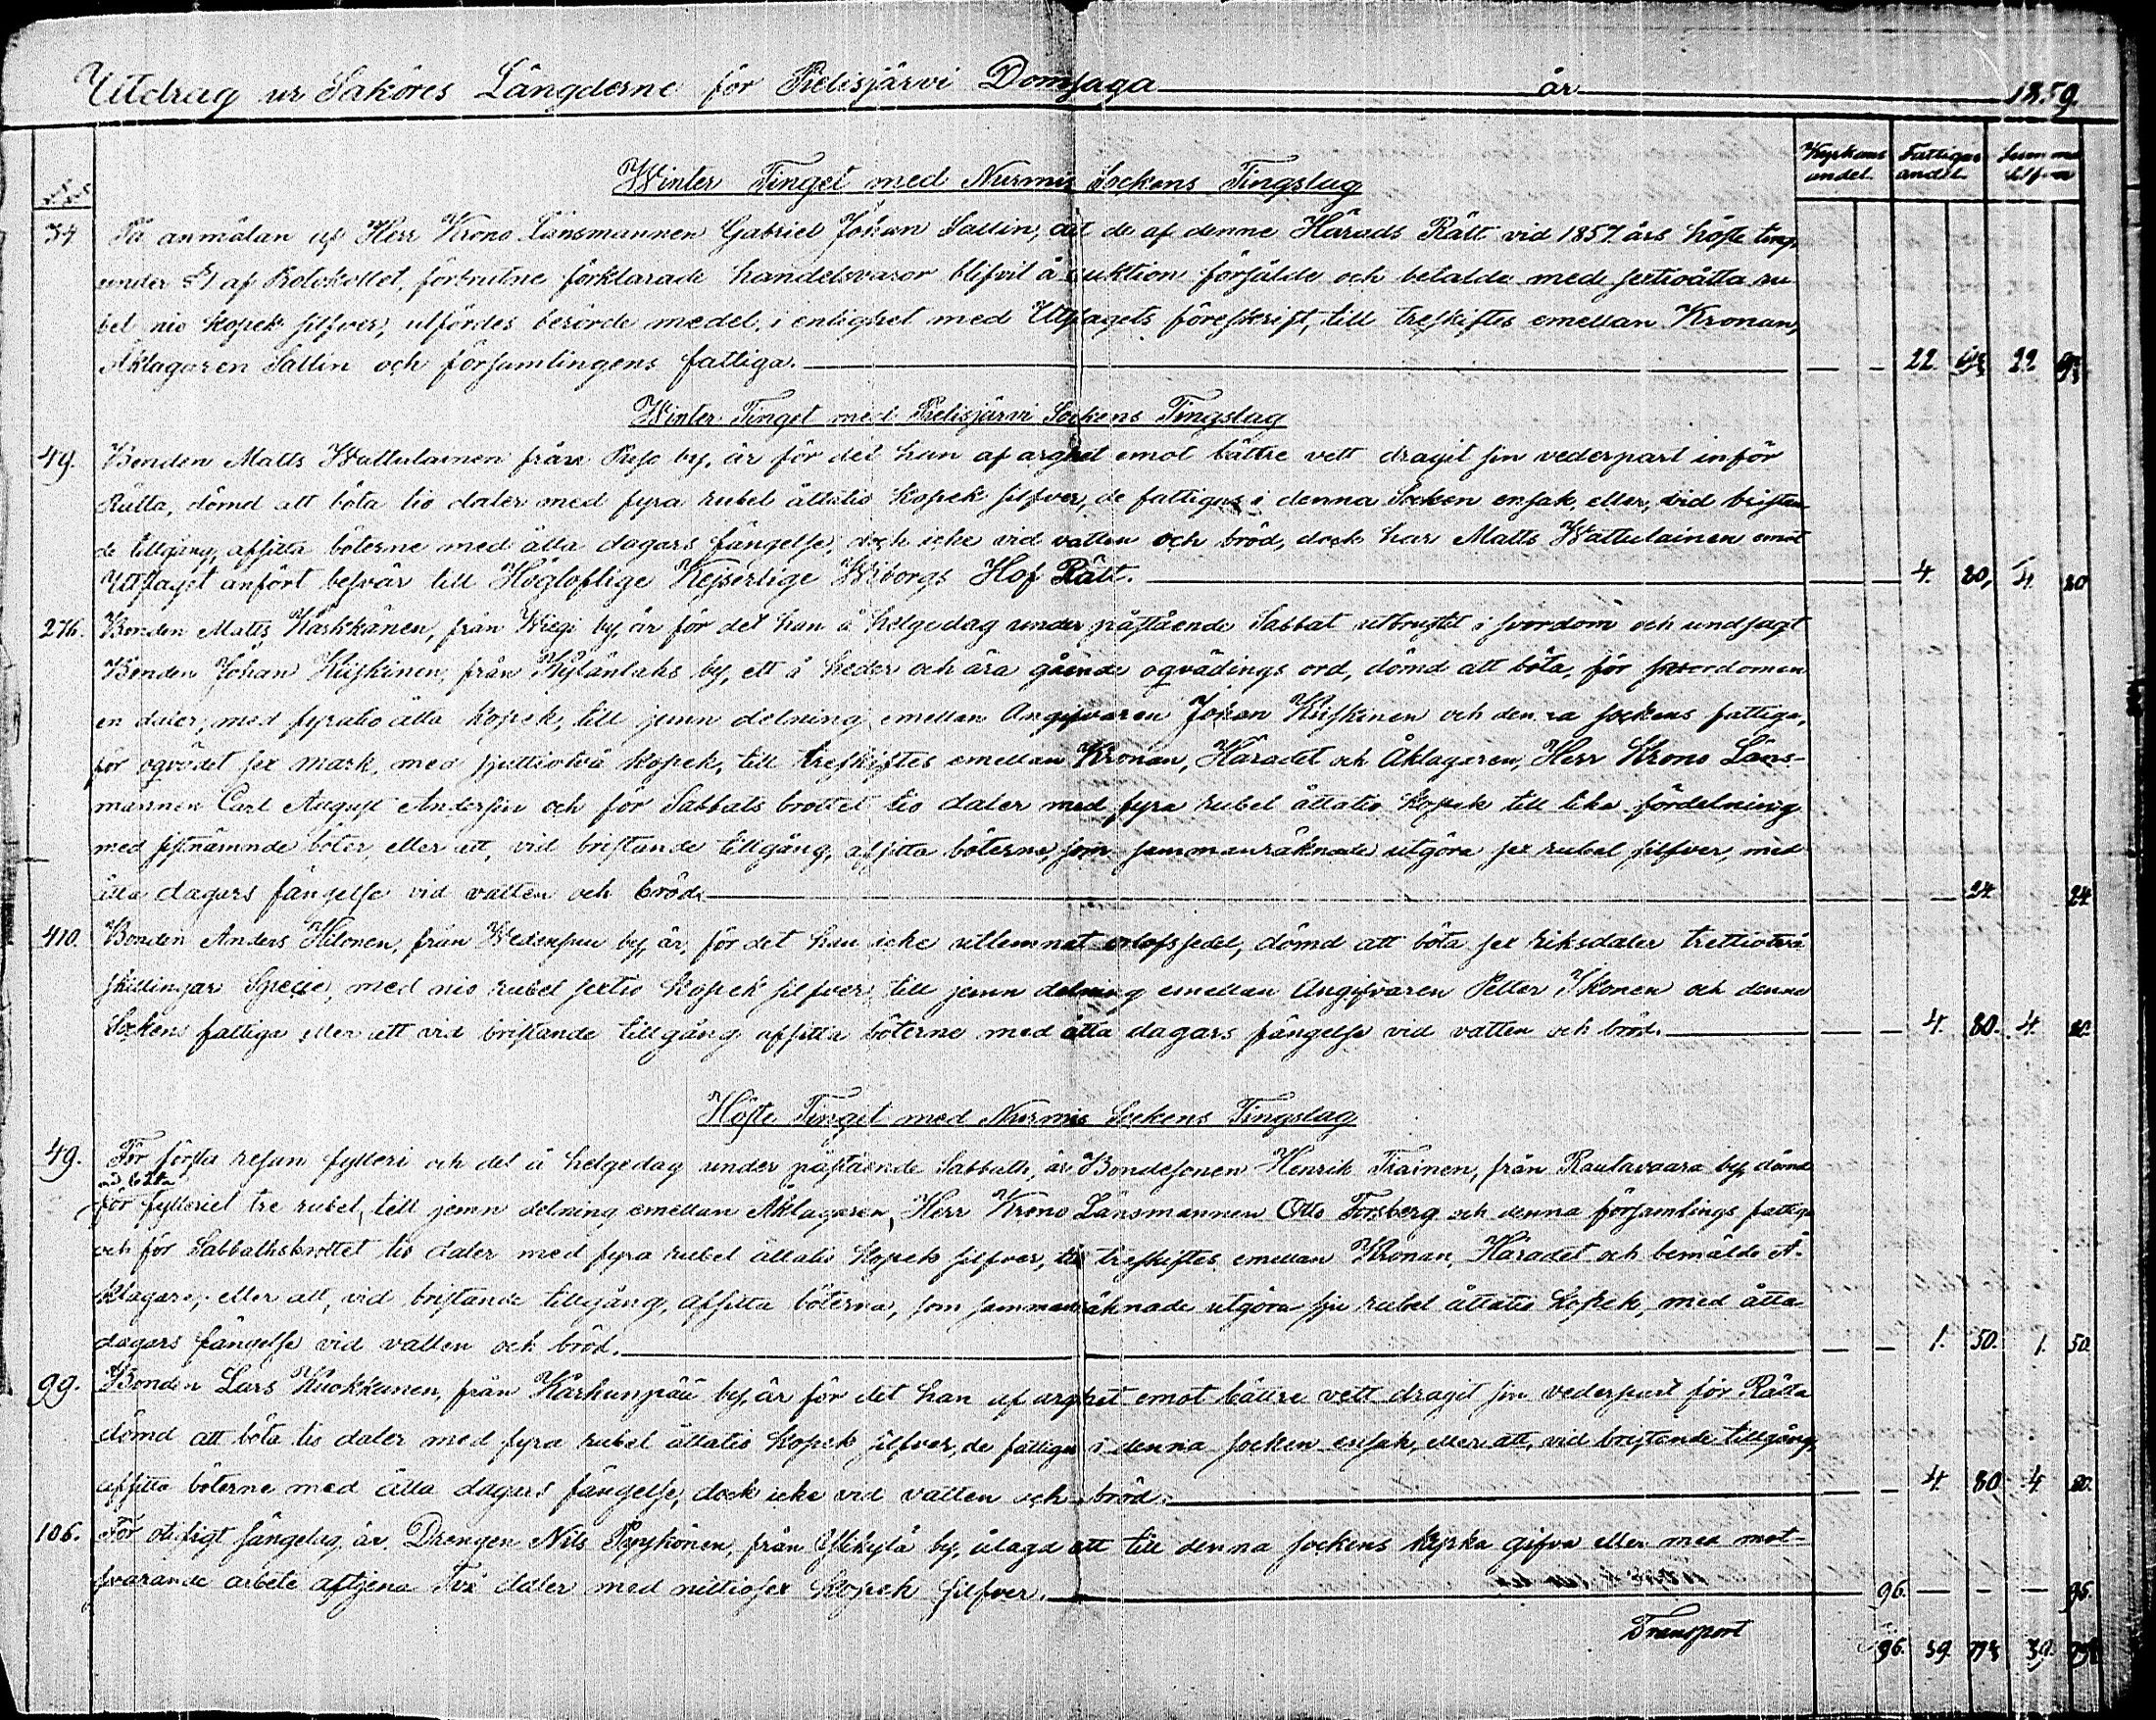 Utdrag ur Saköres Längderne för Pielisjärvi Domsaga år 1859.
Kyrkans andel. Fattigas andel. Summa silfver
Winter Tinget med Nurmis Sockens Tingslag
34 På anmälan af Herr Krono Länsmannen Gabriel Johan Sallin, att de af denne Härads Rätt vid 1857 års höste ting,
under § af Protokollet, förbrutne förklarade handelsvaror blifvit å auktion försålde och betalde med sextioåtta ru
bel nio kopek silfver, utfördes berörde medel, i enlighet med Utslagets föreskrift, till treskiftes emellan Kronan,
Åklagaren Sallin och församlingens fattiga. 22. 22
Winter Tinget med Pielisjärvi Sockens Tingslag
49. Bonden Matts Wattulainen från by, är för det han af arghet emot bättre vett dragit sin vederpart inför
Rätta, dömd att böta tio daler med fyra rubel åttatio kopek silfver, de fattigas i denna Socken ensak, eller, vid bristan
de tillgång, afsitta böterne med åtta dagars fängelse, dock icke vid vatten och bröd, dock har Matts Wattulainen emot
Utslaget anfört besvär till Högloflige Kejserlige Wiborgs Hof Rätt. 4. 80, 4. 80
276. Bonden Matts Kärkkänen, från Wiegi by, är för det han å helgedag under påstående Sabbat utbrustit i svordom och undsagt
Bonden Johan Kiiskinen, från Kylänlaks by, ett å heder och ära gående oqvädings ord, dömd att böta, för svordomen
en daler, med fyratio åtta kopek, till jemn delning emellan Angifvaren Johan Kiiskinen och denna sockens fattiga,
för oqvädet sex mark, med sjuttiotvå kopek, till treskiftes emellan Kronan, Häradet och Åklagaren, Herr Krono Läns-
mannen Carl August Andersin och för Sabbats brottet tio daler med fyra rubel åttatio kopek till lika fördelning
med sistnämnde böter eller att, vid bristande tillgång, afsitta böterne, som sammanräknade utgöra sex rubel silfver, med
åtta dagars fängelse vid vatten och bröd. 24 24
410. Bonden Anders Kilonen, från by, är, för det han icke utlemnat orlofssedel, dömd att böta sex riksdaler trettiotvå
skillingar Specie, med nio rubel sextio kopek silfver till jemn delning emellan Angifvaren Petter Ikonen och denna
Sockens fattiga eller att vid bristande tillgång afsitta böterne med åtta dagars fängelse vid vatten och bröd. 4. 80. 4. 80.
Höste Tinget med Nurmis Sockens Tingslag
49. För första resan fylleri och det å helgedag under påstående Sabbath, är Bondesonen Henrik Tiainen, från Rautavaara by, dömd
att böta
för fylleriet tre rubel, till jemn delning emellan Åklagaren, Herr Krono Länsmannen Otto Forsberg och denna församlings fattiga
och för Sabbathsbrottet tio daler med fyra rubel åttatio kopek silfver, till treskiftes emellan Kronan, Häradet och bemälde Å-
klagare, eller att, vid bristande tillgång, afsitta böterna, som sammanräknade utgöra sju rubel åttatio kopek, med åtta
dagars fängelse vid vatten och bröd. 1. 50. 1. 50.
99. Bonden Lars Kuokkanen, från Karhunpää by, är för det han af arghet emot bättre vett dragit sin vederpart för Rätta
dömd att böta tio daler med fyra rubel åttatio kopek silfver, de fattigas i denna socken ensak, eller att, vid bristande tillgång,
afsitta böterne med åtta dagars fängelse, dock icke vid vatten och bröd. 4. 80 4. 80.
106. För otidigt sängelag är Drengen Nils Pyykönen, från Ylikylä by, ålagd att till denna sockens kyrka gifva eller med mot-
svarande arbete aftjena Två daler med nittiosex kopek silfver. 96. 96.
Transport 96. 39 39.